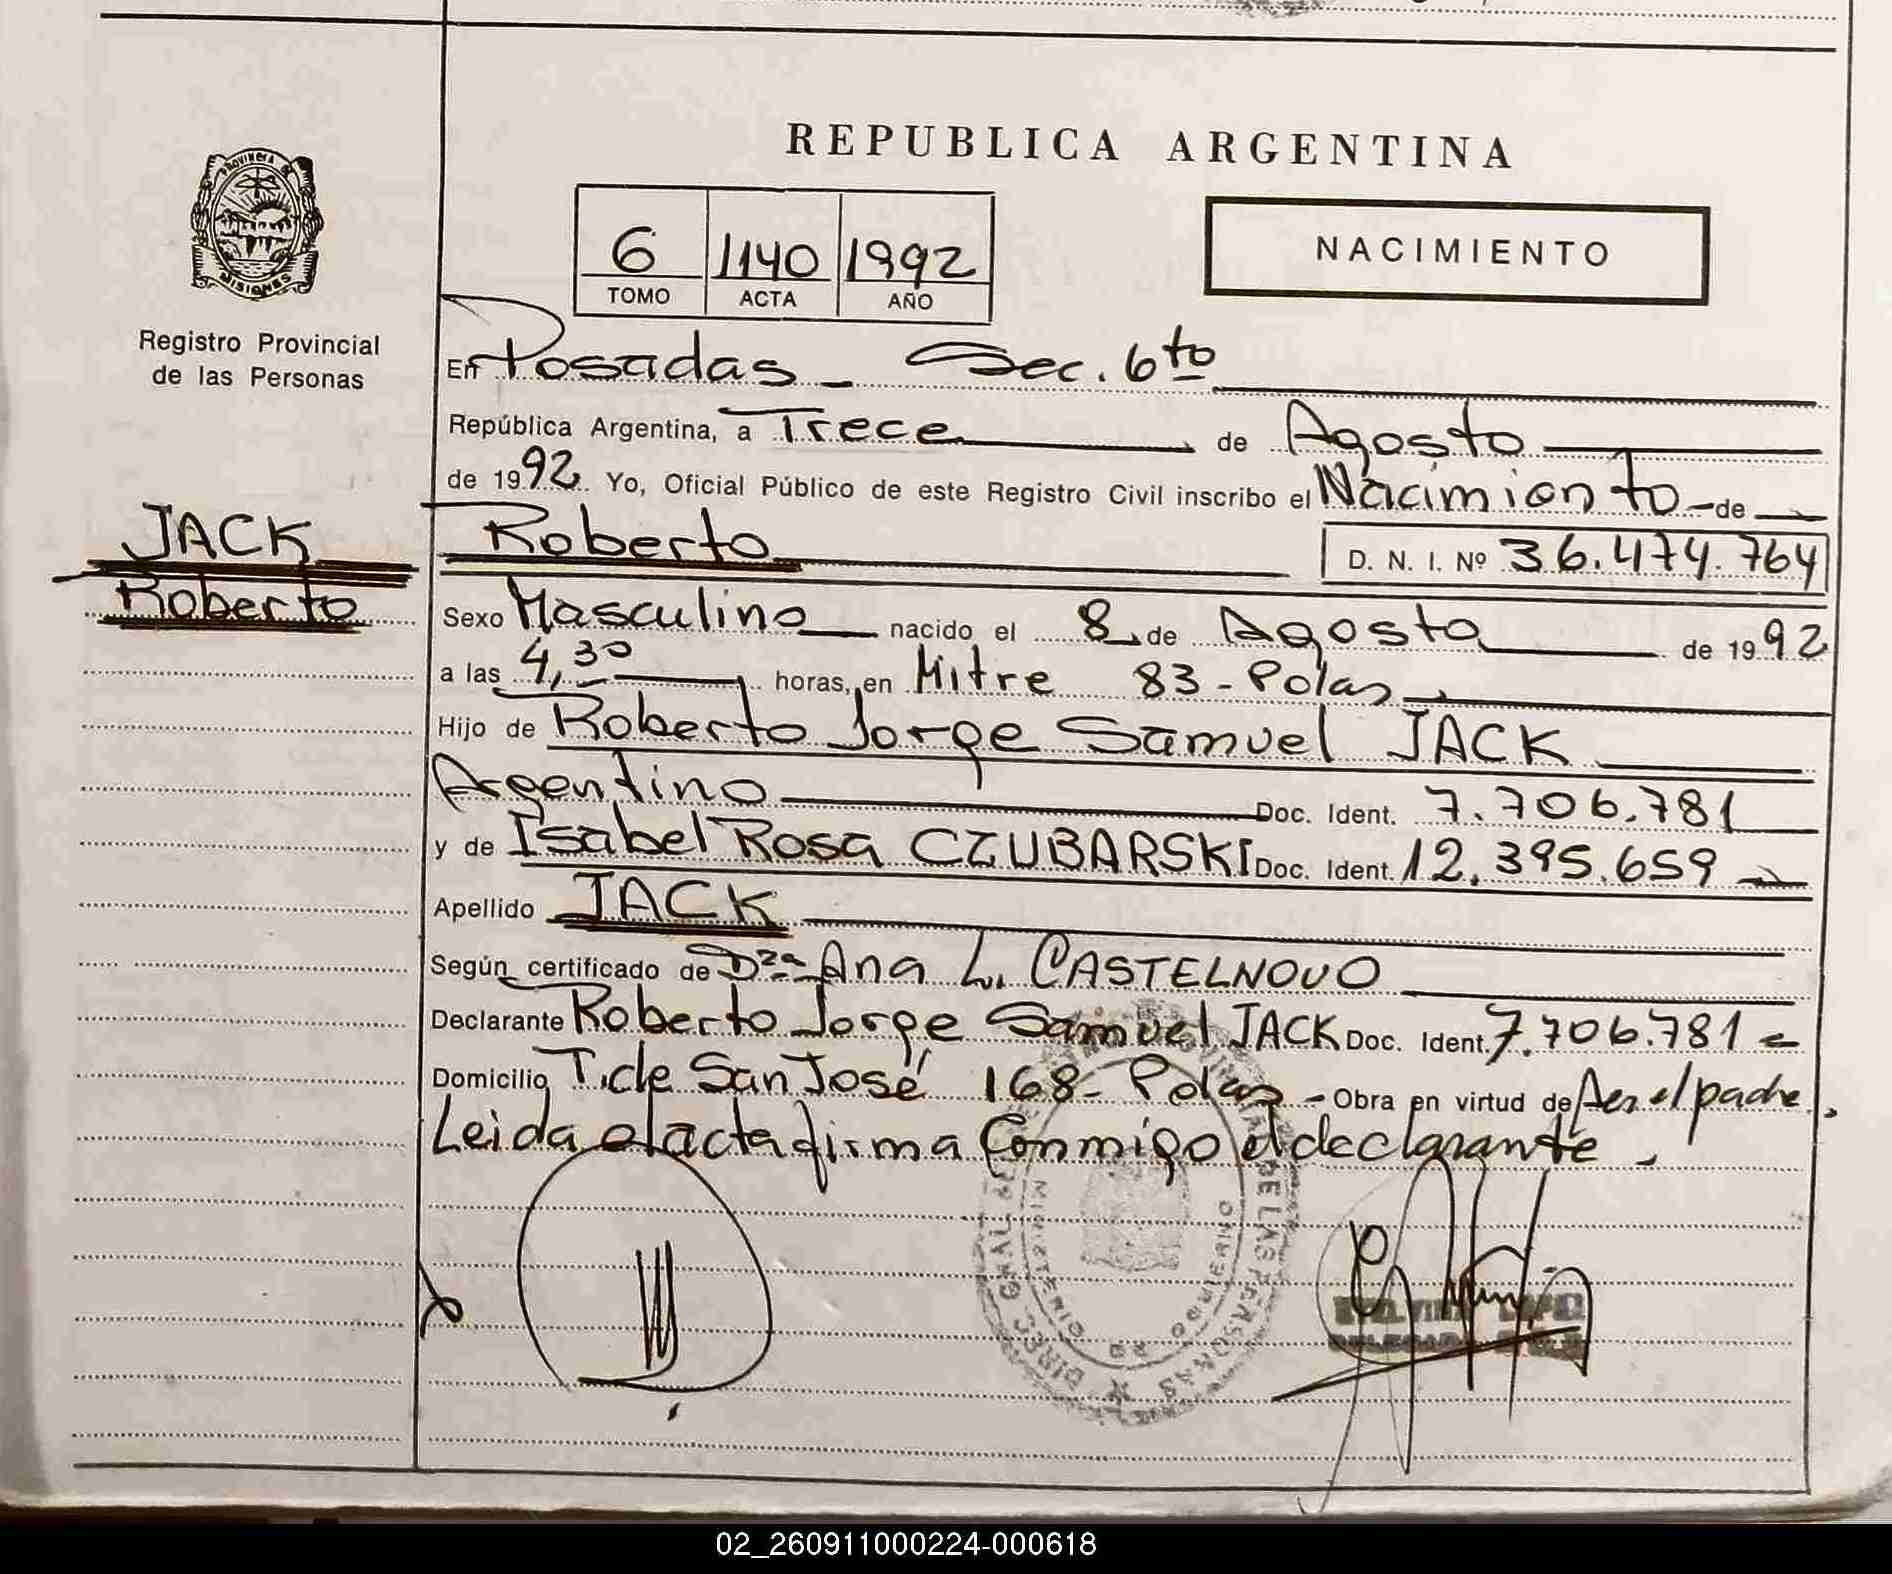 REPUBLICA ARGENTINA
PROVINCIA DE
MISIONES
Registro Provincial
de las Personas
6 1140 1992
TOMO ACTA AÑO
NACIMIENTO
En Posadas - Sec. 6to
República Argentina, a Trece de Agosto
de 1992. Yo, Oficial Público de este Registro Civil inscribo el Nacimiento de
JACK
Roberto
Roberto D. N. I. Nº 36.474.764
Sexo Masculino nacido el 8 de Agosto de 1992
a las 4,30 horas, en Mitre 83 - Pdas
Hijo de Roberto Jorge Samuel JACK
Argentino Doc. Ident. 7.706.781
y de Isabel Rosa CZUBARSKI Doc. Ident. 12.395.659
Apellido JACK
Según certificado de Dra Ana L. CASTELNOVO
Declarante Roberto Jorge Samuel JACK Doc. Ident. 7.706.781
Domicilio T. de San José 168 - Pdas - Obra en virtud de ser el padre.
Leida el acta firma conmigo el declarante.
DE LAS PERSONAS
MINISTERIO DE GOBIERNO
02_260911000224-000618